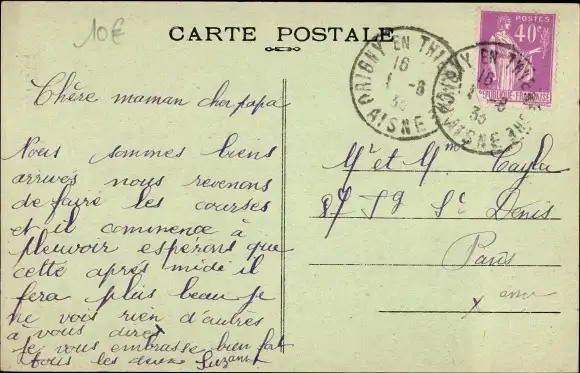 10€
CARTE POSTALE
POSTES
40c
REPUBLIQUE FRANÇAISE
ORIGNY EN THIERACHE
16
1 -8
35
AISNE
ORIGNY EN THIERACHE
16
1 -8
35
AISNE
Chère maman cher papa
Nous sommes biens
arrivés nous revenons
de faire les courses
et il commence à
pleuvoir espérons que
cette après midi il
fera plus beau je
ne vois rien d'autres
à vous dires
Je vous embrasse bien fort
tous les deux Suzanne
Mr et Mme Cayla
87 Fg St Denis
Paris
x